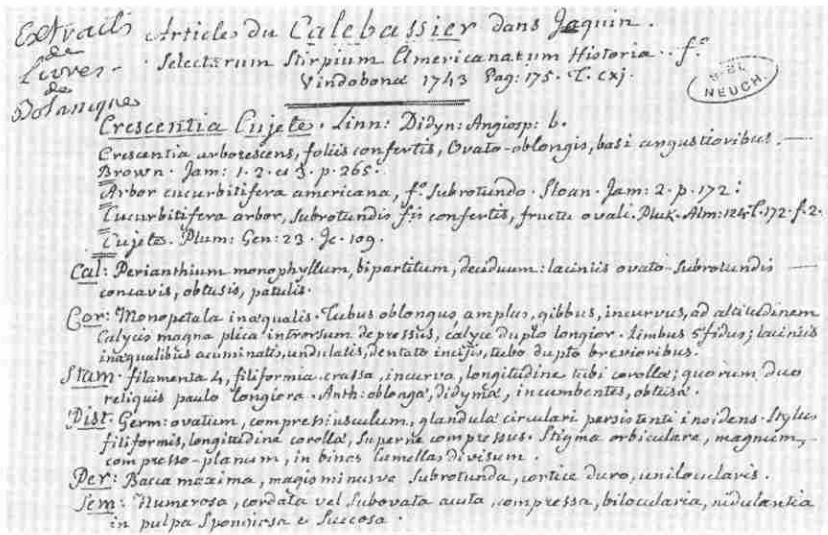 Extraits
de
Livres
de
Botanique
Articles du Calebassier dans Jaquin.
Selectarum Stirpium Americanarum Historia. fº
Vindobonæ 1743 Pag: 175. T. cxj.
NEUCH.
Crescentia Cujete. Linn: Didyn: Angiosp: b.
Crescentia arborescens, foliis confertis, ovato-oblongis, basi angustioribus. —
Brown. Jam: 1. 2. et 3. p. 265.
Arbor cucurbitifera americana, fº subrotundo. Sloan. Jam: 2. p. 172:
Cucurbitifera arbor, subrotundis fis confertis, fructu ovali. Pluk. Alm: 124 T. 172. f. 2.
Cujete. Plum: Gen: 23. Ic. 109.
Cal: Perianthium monophyllum, bipartitum, deciduum: laciniis ovato-subrotundis —
concavis, obtusis, patulis.
Cor: Monopetala inæqualis. Tubus oblongus amplus, gibbus, incurvus, ad altitudinem
Calycis magna plica introrsum depressus, calyce duplo longior. Limbus 5fidus; laciniis
inæqualibus acuminatis, undulatis, dentato incisis, tubo duplo brevioribus.
Stam. filamenta 4, filiformia crassa, incurva, longitudine tubi corollæ; quorum duo
reliquis paulo longiora. Anth: oblongæ, didymæ, incumbentes, obtusæ.
Pist. Germ: ovatum, compressiusculum, glandulæ circulari persistenti insidens. Stylus
filiformis, longitudine corollæ, superne compressus. Stigma orbiculare, magnum,
compresso-planum, in binas lamellas divisum.
Per: Bacca maxima, magis minusve subrotunda, cortice duro, unilocularis.
Sem: Numerosa, cordata vel subovata acuta, compressa, bilocularia, nidulantia
in pulpa spongiosa e succosa.